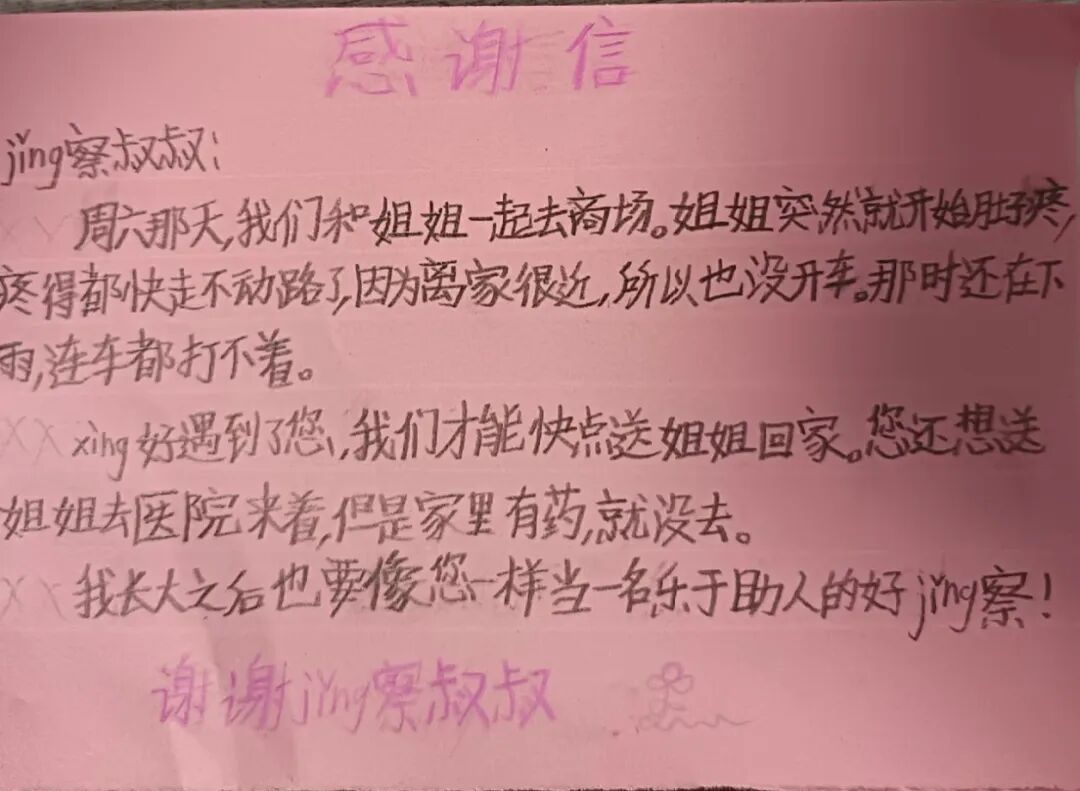 感谢信
jǐng察叔叔：
周六那天,我们和姐姐一起去商场。姐姐突然就开始肚子疼,
疼得都快走不动路了,因为离家很近,所以也没开车。那时还在下
雨,连车都打不着。
xìng好遇到了您,我们才能快点送姐姐回家。您还想送
姐姐去医院来着,但是家里有药,就没去。
我长大之后也要像您一样当一名乐于助人的好jǐng察!
谢谢jǐng察叔叔